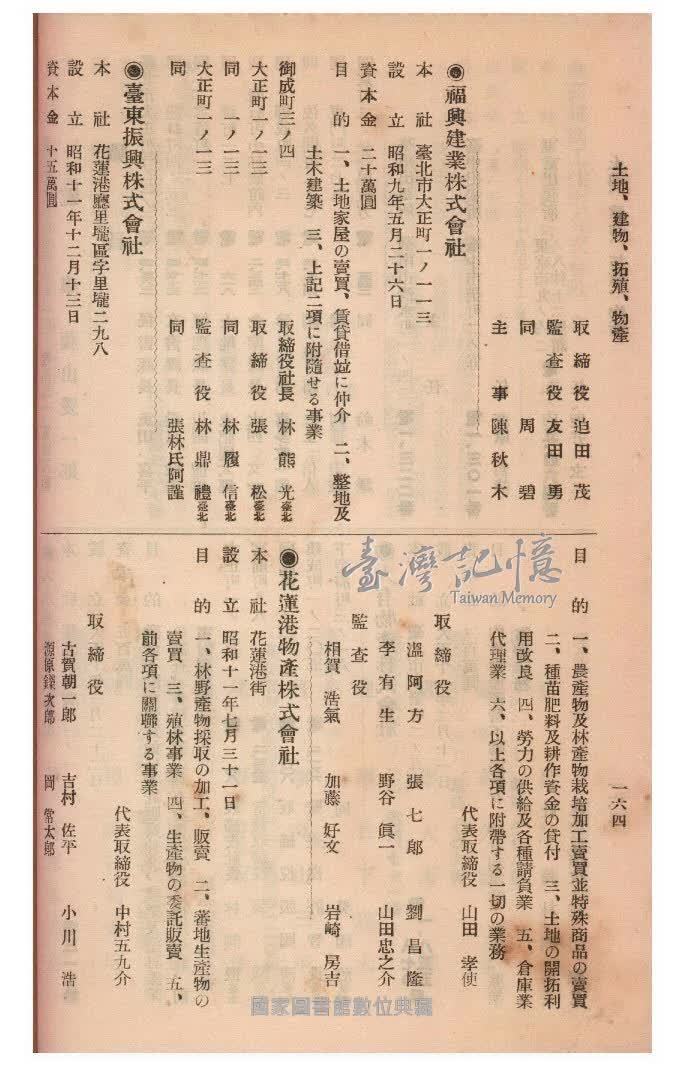 土地、建物、拓殖、物產
一六四
取締役 迫田茂
監査役 友田勇
同 周碧
主事 陳秋木
◉福興建業株式會社
本社 臺北市大正町一ノ一一三
設立 昭和九年五月二十六日
資本金 二十萬圓
目的 一、土地家屋の賣買、賃貸借竝に仲介 二、整地及
土木建築 三、上記二項に附隨せる事業
御成町三ノ四 取締役社長 林熊光 臺北
大正町一ノ一三 取締役 張松 臺北
同 一ノ一三 同 林履信 臺北
大正町一ノ一三 監査役 林鼎禮 臺北
同 同 張林氏阿謹
◉臺東振興株式會社
本社 花蓮港廳里壠區字里壠二九八
設立 昭和十一年十二月十三日
資本金 十五萬圓
目的 一、農產物及林產物栽培加工賣買並特殊商品の賣買
二、種苗肥料及耕作資金の貸付 三、土地の開拓利
用改良 四、勞力の供給及各種請負業 五、倉庫業
代理業 六、以上各項に附帶する一切の業務
代表取締役 山田孝使
取締役
溫阿方 張七郎 劉昌隆
李有生 野谷眞一 山田忠之介
監査役
相賀浩氣 加藤好文 岩崎房吉
◉花蓮港物產株式會社
本社 花蓮港街
設立 昭和十一年七月三十一日
目的 一、林野產物採取の加工、販賣 二、蕃地生產物の
賣買 三、殖林事業 四、生產物の委託販賣 五、
前各項に關聯する事業
代表取締役 中村五九介
取締役
古賀朝一郎 吉村佐平 小川一浩
源原鐵次郎 岡常太郎
臺灣記憶
Taiwan Memory
國家圖書館數位典藏